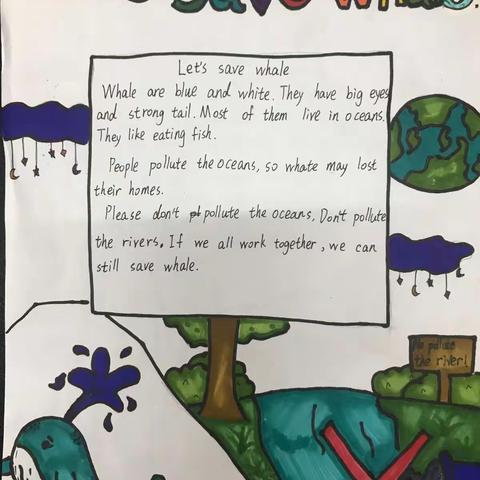 save whales.
Let's save whale
Whale are blue and white. They have big eyes
and strong tail. Most of them live in oceans.
They like eating fish.
People pollute the oceans, so whate may lost
their homes.
Please don't pollute the oceans, Don't pollute
the rivers. If we all work together, we can
still save whale.
No pollute
the river!